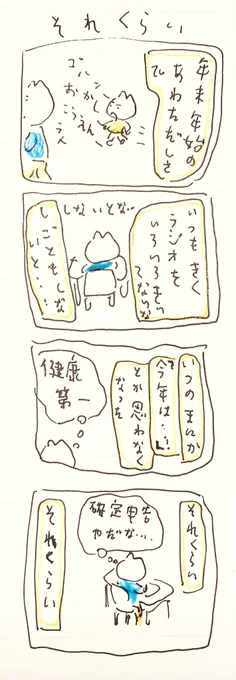 それくらい
年末年始の
あわただしさ
ゴハン
いつもきく
ラジオを
いろいろきい
しないとな…
しごともしな
いと…
いつのまにか
今年は…
とか思わなく
なった
健康
第一
それくらい
確定申告
やだな…
それくらい